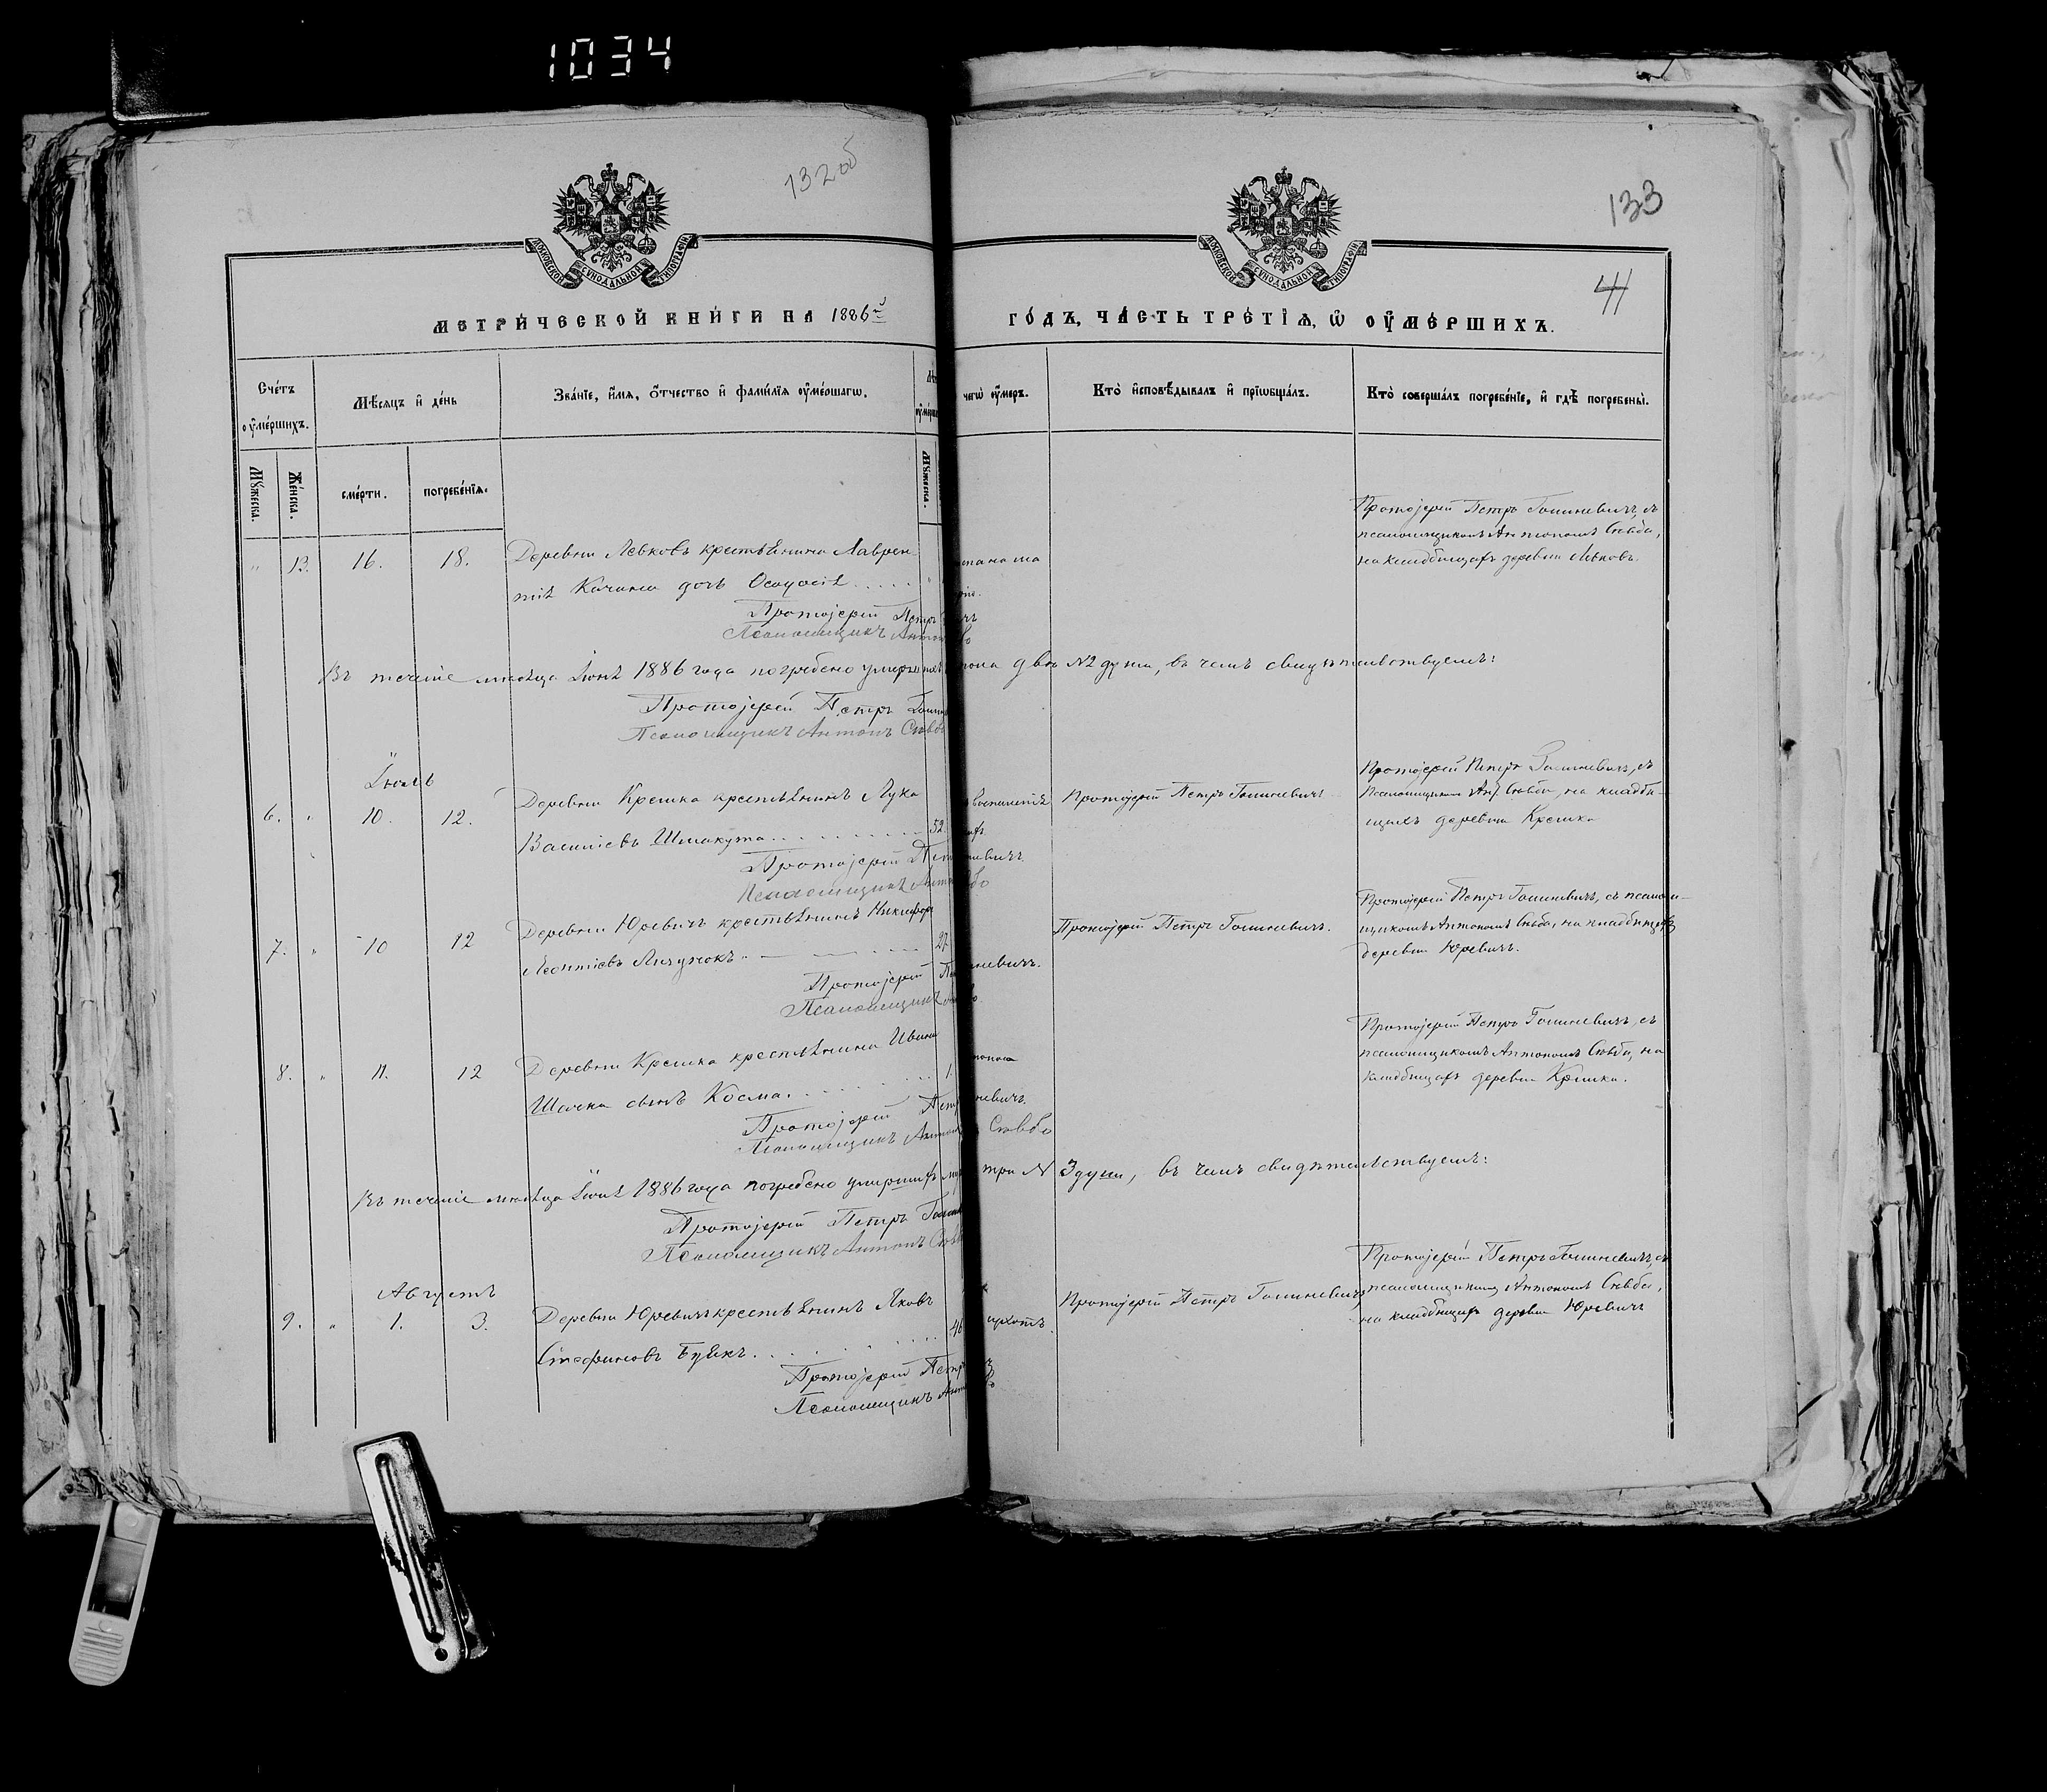 1034
132об
133
МОСКОВСКОЙ СѴНОДАЛЬНОЙ ТИПОГРАФІИ
МОСКОВСКОЙ СѴНОДАЛЬНОЙ ТИПОГРАФІИ
41
МЕТРИ́ЧЕСКОЙ КНИ́ГИ НА 1886й
ГО́ДЪ, ЧА́СТЬ ТРЕ́ТІѦ, Ѡ҆ ОУ҆МЕ́РШИХЪ.
Сче́тъ оу҆ме́ршихъ.
Мѣ́сяцъ и҆ де́нь
Зва́ніе, и҆́мѧ, ѻ҆́тчество и҆ фами́лїѧ оу҆ме́ршагѡ.
чегѡ̀ оу҆́меръ.
Кто̀ и҆сповѣ́дывалъ и҆ прїѡбща́лъ.
Кто̀ соверша́лъ погребе́нїе, и҆ гдѣ̀ погребены̀.
Мꙋ́жеска.
Же́нска.
сме́рти.
погребе́нїѧ.
Мꙋ́жеска.
" 12. 16. 18. Деревни Левковъ крестьянина Лаврен-
тія Качана дочь
Протоіерей Петръ
Псаломщикъ Антон
Протоіерей Петръ Гоминевичъ, съ
псаломщикомъ Антономъ Сѣвба,
на кладбищахъ деревни Левковъ.
Въ теченіе мѣсяца Іюня 1886 года погребено умершихъ пола двѣ №2 души, въ чемъ свидѣтельствуемъ:
Протоіерей Петръ
Псаломщикъ Антонъ
Іюль
6. " 10. 12. Деревни Крешка крестьянинъ Лука
Василіевъ Шмакута 52
Протоіерей невичъ.
Псаломщикъ
Протоіерей Петръ Гоминевичъ
Протоіерей Петръ Гоминевичъ, съ
Псаломщикомъ Ант Сѣвба, на кладби-
щахъ деревни Крешка
7. " 10 12 Деревни Юревичъ крестьянинъ Никифор
Леонтіевъ 27
Протоіерей невичъ.
Псаломщикъ
Протоіерей Петръ Гоминевичъ.
Протоіерей Петръ Гоминевичъ, съ псалом-
щикомъ Антономъ Сѣвба, на кладбищахъ
деревни Юревичъ.
8. " 11. 12 Деревни Крешка крестьянина Ивана
сынъ Косма. 1.
Протоіерей невичъ.
Псаломщикъ Антон Сѣвба
Протоіерей Петръ Гоминевичъ, съ
псаломщикомъ Антономъ Сѣвба, на
кладбищахъ деревни Крешка.
Въ теченіе мѣсяца Іюля 1886 года погребено умершихъ три № 3 души, въ чемъ свидѣтельствуемъ:
Протоіерей Петръ
Псаломщикъ Антонъ
Августъ
9. " 1. 3. Деревни Юревичъ крестьянинъ Яковъ
Стефановъ 46
Протоіерей Петръ
Псаломщикъ
Протоіерей Петръ Гоминевичъ
Протоіерей Петръ Гоминевичъ, съ
псаломщикомъ Антономъ Сѣвба,
на кладбищахъ деревни Юревичъ